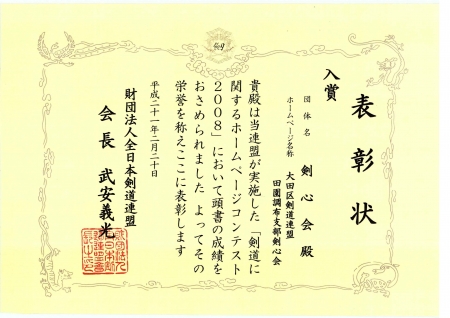 表彰状
入賞
団体名 剣心会殿
ホームページ名称 大田区剣道連盟
田園調布支部剣心会
貴殿は当連盟が実施した「剣道に
関するホームページコンテスト
2008」において頭書の成績を
おさめられました よってその
栄誉を称えここに表彰します
平成二十一年二月二十日
財団法人全日本剣道連盟
会長 武安義光